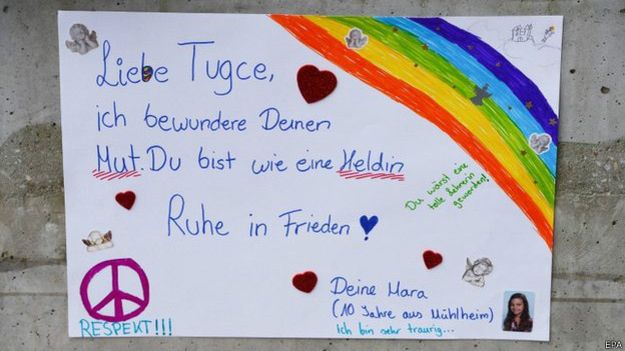 Liebe Tugce,
ich bewundere Deinen
Mut. Du bist wie eine Heldin
Ruhe in Frieden
Du wärst eine
tolle Lehrerin
geworden!
Deine Mara
(10 Jahre aus Mühlheim)
Ich bin sehr traurig...
RESPEKT!!!
EPA